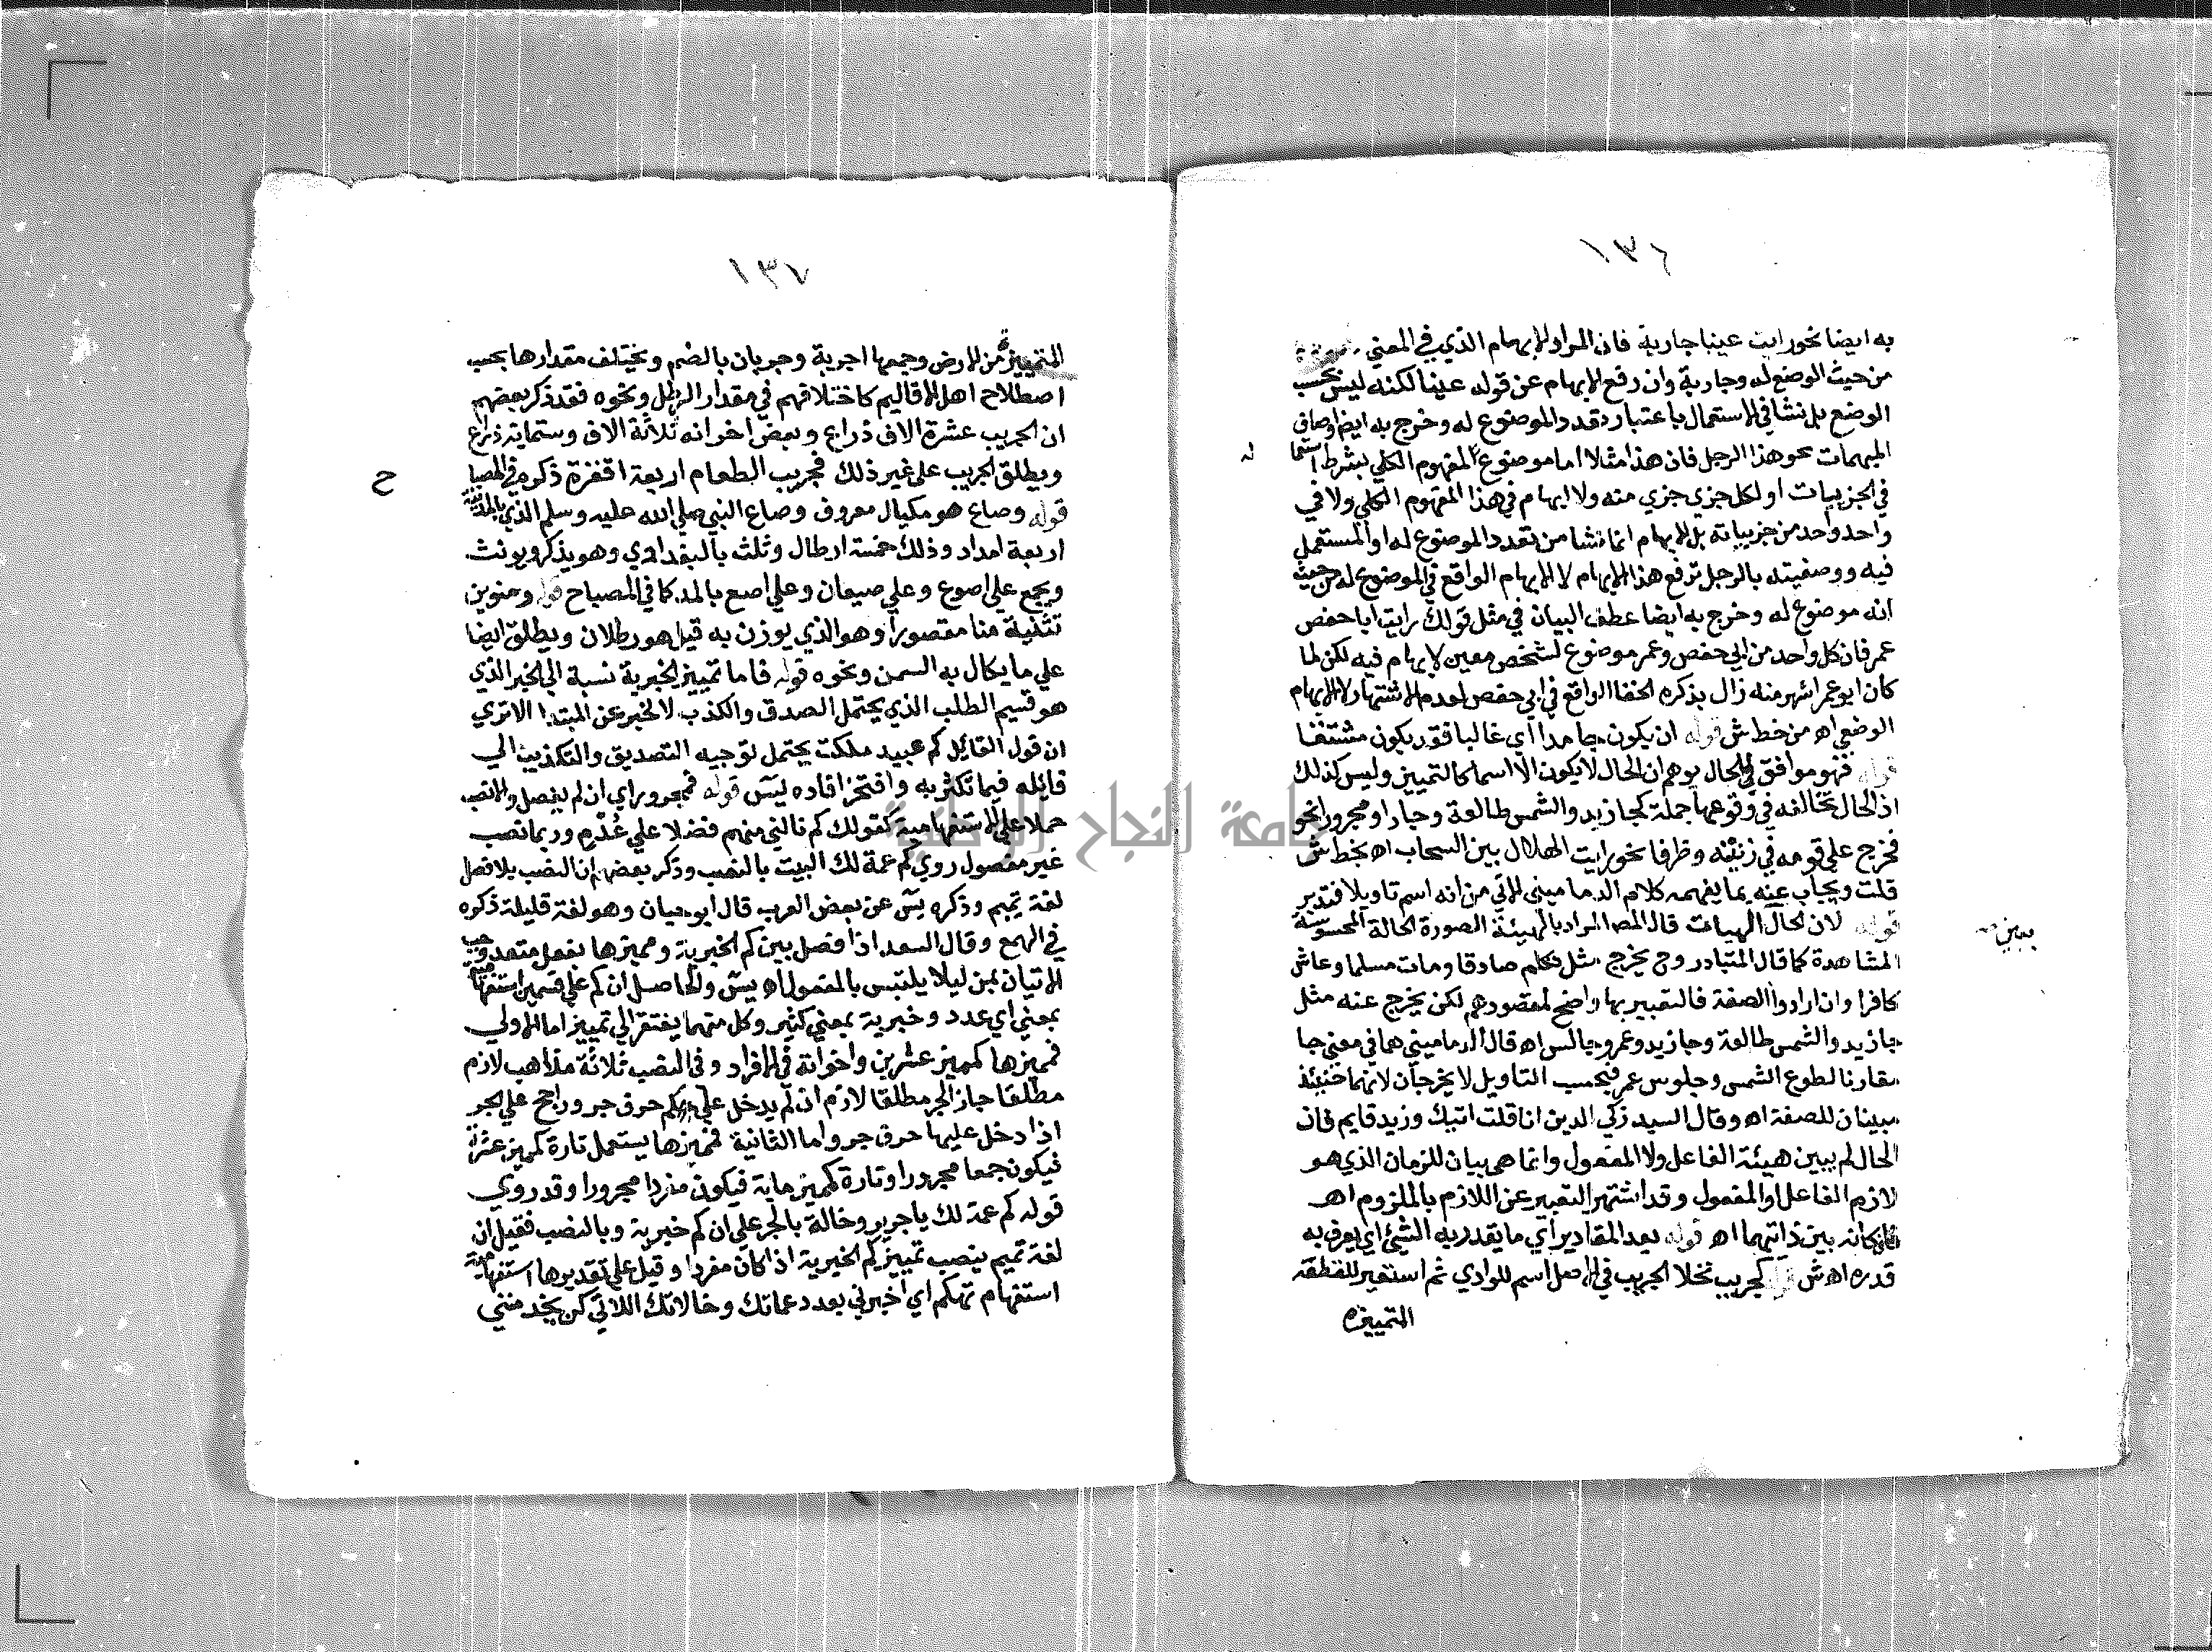 ١٣٦
به ايضا نحو رايت عينا جارية فان المراد الابهام الذي في المعني
من حيث الوضع له وجارية وان رفع الابهام عن قوله عينا لكنه ليس بحسب
الوضع بل نشا في الاستعمال باعتبار تعدد الموضوع له وخرج به ايضا اوصاف
المبهمات نحو هذا الرجل فان هذا مثلا اما موضوع المفهوم الكلي بشرط استعما
له
في الجزييات او لكل جزي جزي منه ولا ابهام في هذا المفهوم الكلي ولا في
واحد واحد من جزيياته بل الابهام انما نشا من تعدد الموضوع له او المستعمل
فيه ووصفيته بالرجل ترفع هذا الابهام لا الابهام الواقع في الموضوع له من حيث
انه موضوع له وخرج به ايضا عطف البيان في مثل قولك رايت ابا حفص
عمر فان كل واحد من ابي حفص وعمر موضوع لشخص معين لا ابهام فيه لكن لما
كان ابو عمر اشهر منه زال بذكره الخفا الواقع في ابي حفص لعدم الاشتهار لا الابهام
الوضعي اه من خط ش قوله ان يكون جامدا اي غالبا فقد يكون مشتقا
قوله فهو موافق للحال يوهم ان الحال لا يكون الا اسما كالتمييز وليس كذلك
اذ الحال تخالفه في وقوعها جملة كجا زيد والشمس طالعة وجارا ومجرورا نحو
فخرج علي قومه في زينته وظرفا نحو رايت الهلال بين السحاب اه بخط ش
قلت ويجاب عنه بما يفهمه كلام الدماميني الاتي من انه اسم تاويلا فتدبر
قوله لان الحال الهيات قال المص المراد بالهيئة الصورة الحالة المحسوسة
المشاهدة كما قال المتبادر وح يخرج مثل تكلم صادقا ومات مسلما وعاش
كافرا وان ارادوا الصفة فالتعبير بها واضح لمقصودهم لكن يخرج عنه مثل
جا زيد والشمس طالعة وجا زيد وعمرو جالس اه قال الدماميني هما في معني جا
مقارنا لطلوع الشمس وجلوس عمر فبحسب التاويل لا يخرجان لانهما حنيئذ
مبينان للصفة اه وقال السيد زكي الدين اذا قلت اتيك وزيد قايم فان
الحال لم يبين هيئة الفاعل ولا المفعول وانما هي بيان للزمان الذي هو
لازم الفاعل او المفعول وقد اشتهر التعبير عن اللازم بالملزوم اه
فكانه بين ذاتهما اه قوله بعد المقادير اي ما يقدر به الشيئ اي يعرف به
قدره اه ش كجريب نخلا الجريب في الاصل اسم للوادي ثم استعير للقطعة
التمييزة
١٣٧
المتمييزة من الارض وجمعها اجربة وجربان بالضم ويختلف مقدارها بحسب
اصطلاح اهل الاقاليم كاختلافهم في مقدار الرطل ونحوه فقد ذكر بعضهم
ان الجريب عشرة الاف ذراع وبعض اخر انه ثلاثة الاف وستماية ذراع
ويطلق الجريب علي غير ذلك فجريب الطعام اربعة اقفزة ذكره في المصبا
ح
قوله وصاع هو مكيال معروف وصاع النبي صلي الله عليه وسلم الذي بالمدينة
اربعة امداد وذلك خمسة ارطال وثلث بالبغدادي وهو يذكر ويونث
ويجمع علي اصوع وعلي صيعان وعلي اصع بالمد كما في المصباح قوله ومنوين
تثنية منا مقصورا وهو الذي يوزن به قيل هو رطلان ويطلق ايضا
علي ما يكال به السمن ونحوه قوله فاما تمييز الخبرية نسبة الي الخبر الذي
هو قسيم الطلب الذي يحتمل الصدق والكذب لا الخبر عن المبتدا الا تري
ان قول القائل كم عبيد ملكت يحتمل توجيه التصديق والتكذيب الي
قايله فيما تكثر به وافتخر افاده يس قوله فمجرور اي ان لم يفصل والا نصب
حملا علي الاستفهامية كقولك كم نالني منهم فضلا علي عدم وربما نصب
غير مفصول روي كم عمة لك البيت بالنصب وذكر بعضهم ان النصب بلا فصل
لغة تميم وذكره يس عن بعض العرب قال ابو حيان وهو لغة قليلة ذكره
في الهمع وقال السعد اذا فصل بين كم الخبرية ومميزها بفعل متعد وجب
الاتيان بمن ليلا يلتبس بالمفعول اه يس والحاصل ان كم علي قسمين استفهامية
بمعني اي عدد وخبرية بمعني كثير وكل منهما يفتقر الي تمييز اما الاولي
فمميزها كمميز عشرين واخواته في الافراد وفي النصب ثلاثة مذاهب لازم
مطلقا جاز الجر مطلقا لازم ان لم يدخل علي كم حرف جر وراجح علي الجر
اذا دخل عليها حرف جر واما الثانية فمميزها يستعمل تارة كمميز عشرة
فيكون جمعا مجرورا وتارة كمميز ماية فيكون مفردا مجرورا وقد روي
قوله كم عمة لك يا جرير وخالة بالجر علي ان كم خبرية وبالنصب فقيل ان
لغة تميم ينصب تمييز كم الخبرية اذا كان مفردا وقيل علي تقديرها استفهامية
استفهام تهكم اي اخبرني بعدد عماتك وخالاتك اللاتي كن يخدمنني
جامعة النجاح الوطنية